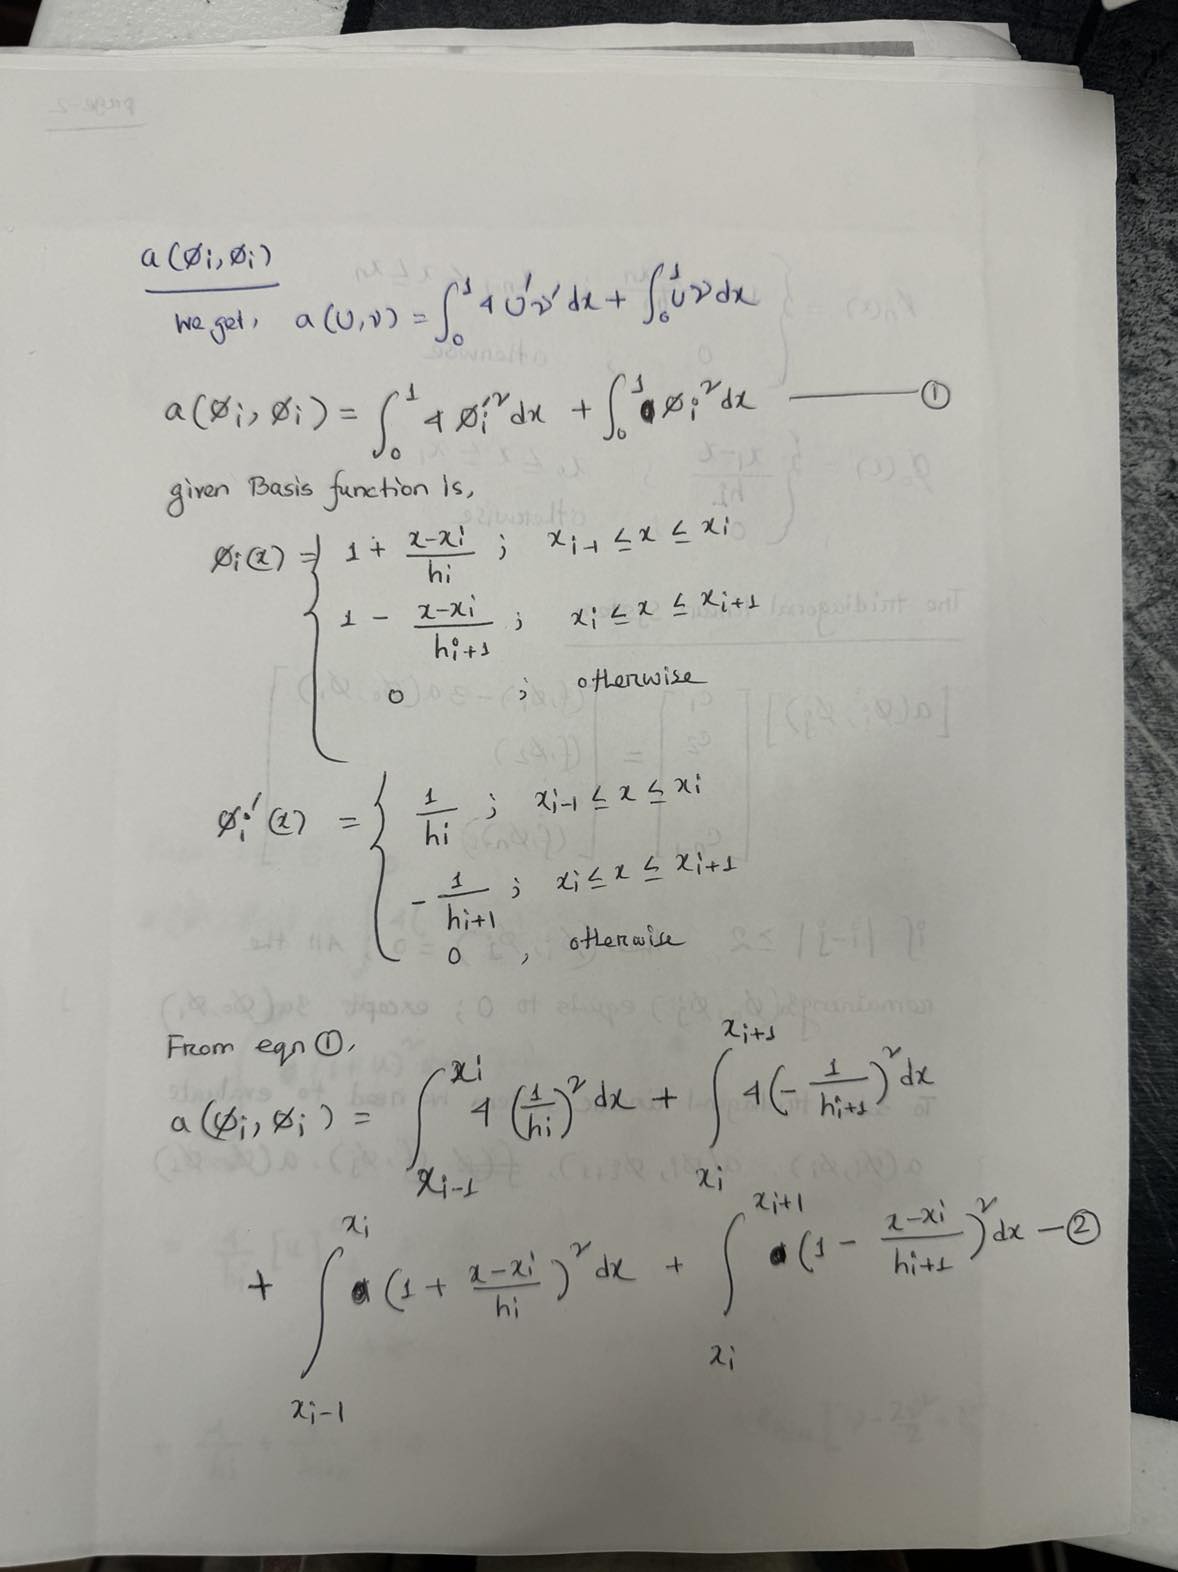 a(∅i, ∅i)
We get, a(U,v) = ∫₀¹ 4 U'v' dx + ∫₀¹ Uv dx
a(∅i, ∅i) = ∫₀¹ 4 ∅i'² dx + ∫₀¹ ∅i² dx —— ①
given Basis function is,
∅i(x) = { 1 + (x-xi)/hi ; xi-1 ≤ x ≤ xi
1 - (x-xi)/hi+1 ; xi ≤ x ≤ xi+1
0 ; otherwise
∅i'(x) = { 1/hi ; xi-1 ≤ x ≤ xi
- 1/hi+1 ; xi ≤ x ≤ xi+1
0 , otherwise
From eqn ①,
a(∅i, ∅i) = ∫_{xi-1}^{xi} 4 (1/hi)² dx + ∫_{xi}^{xi+1} 4 (- 1/hi+1)² dx
+ ∫_{xi-1}^{xi} (1 + (x-xi)/hi)² dx + ∫_{xi}^{xi+1} (1 - (x-xi)/hi+1)² dx — ②